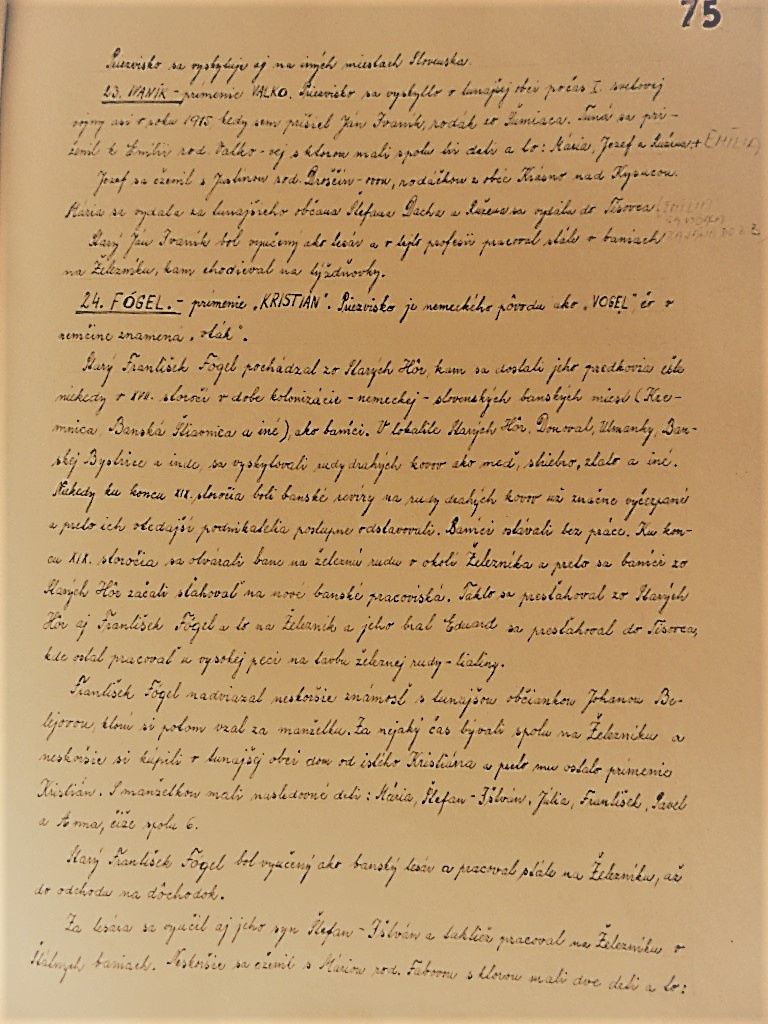 75
Priezvisko sa vyskytuje aj na iných miestach Slovenska.
23. IVANÍK - prímenie VALKO. Priezvisko sa vyskytlo v tunajšej obci počas I. svetovej
vojny asi v roku 1915, kedy sem prišiel Ján Ivaník, rodák zo Šumiaca. Tuná sa pri-
ženil k Emílii rod. Valko-vej s ktorou mali spolu tri deti a to: Mária, Jozef a Ružena + EMÍLIA
Jozef sa oženil s Justínou rod. Droščín-ovou, rodáčkou z obce Krásno nad Kysucou.
Mária sa vydala za tunajšieho občana Štefana Dacha a Ružena sa vydala do Tisovca (EMÍLIA
Starý Ján Ivaník bol vyučený ako tesár a v tejto profesii pracoval stále v baniach
na Železníku, kam chodieval na týždňovky.
24. FÓGEL. - prímenie „KRISTIÁN". Priezvisko je nemeckého pôvodu ako „VOGEL", čo v
nemčine znamená „vták".
Starý František Fógel pochádzal zo Starých Hôr, kam sa dostali jeho predkovia ešte
niekedy v XVII. storočí v dobe kolonizácie - nemeckej - slovenských banských miest (Kre-
mnica, Banská Štiavnica a iné), ako baníci. V lokalite Starých Hôr, Donoval, Ulmanky, Ban-
skej Bystrice a inde, sa vyskytovali rudy drahých kovov ako meď, striebro, zlato a iné.
Niekedy ku koncu XIX. storočia boli banské revíry na rudy drahých kovov už značne vyčerpané
a preto ich vtedajší podnikatelia postupne odstavovali. Baníci ostávali bez práce. Ku kon-
cu XIX. storočia sa otvárali bane na železnú rudu v okolí Železníka a preto sa baníci zo
Starých Hôr začali sťahovať na nové banské pracoviská. Takto sa presťahoval zo Starých
Hôr aj František Fógel a to na Železník a jeho brat Eduard sa presťahoval do Tisovca,
kde ostal pracovať u vysokej peci na tavbu železnej rudy - liatiny.
František Fógel nadviazal neskoršie známosť s tunajšou občiankou Johanou Be-
lejovou, ktorú si potom vzal za manželku. Za nejaký čas bývali spolu na Železníku a
neskoršie si kúpili v tunajšej obci dom od istého Kristiána a preto mu ostalo prímenie
Kristián. S manželkou mali nasledovné deti: Mária, Štefan - Ištván, Júlia, František, Pavel
a Anna, čiže spolu 6.
Starý František Fógel bol vyučený ako banský tesár a pracoval stále na Železníku, až
do odchodu na dôchodok.
Za tesára sa vyučil aj jeho syn Štefan - Ištván a taktiež pracoval na Železníku v
štátnych baniach. Neskoršie sa oženil s Máriou rod. Faborou s ktorou mali dve deti a to: